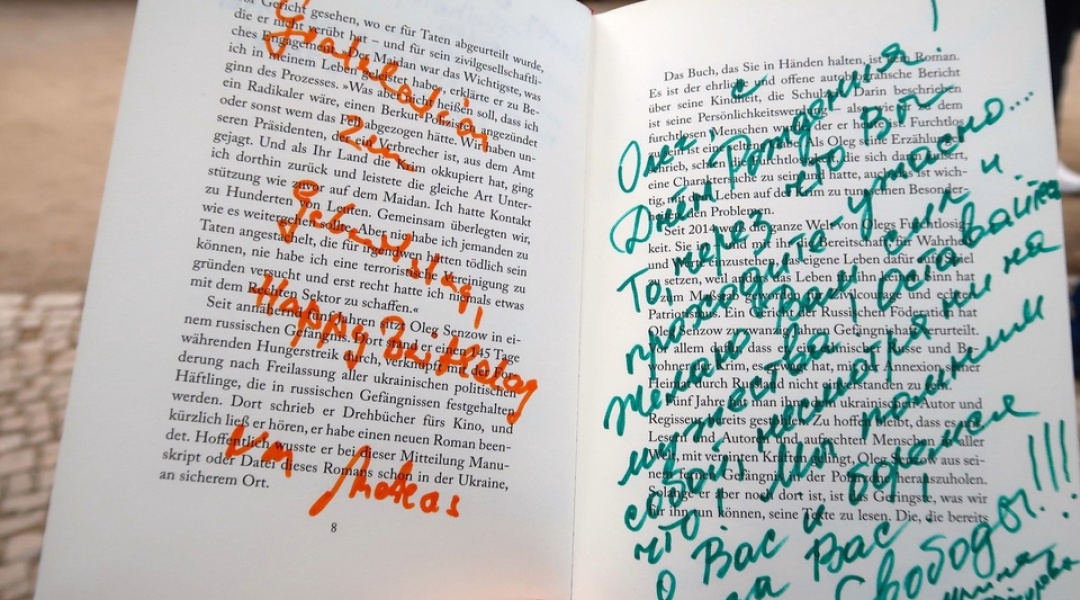 Gericht gesehen, wo er für Taten abgeurteilt wurde,
die er nicht verübt hat – und für sein zivilgesellschaftli-
ches Engagement. »Der Maidan war das Wichtigste, was
ich in meinem Leben geleistet habe, erklärte er zu Be-
ginn des Prozesses. »Was aber nicht heißen soll, dass ich
ein Radikaler wäre, einen Berkut-Polizisten angezündet
oder sonst wem das Fell abgezogen hätte. Wir haben un-
seren Präsidenten, der ein Verbrecher ist, aus dem Amt
gejagt. Und als Ihr Land die Krim okkupiert hat, ging
ich dorthin zurück und leistete die gleiche Art Unter-
stützung wie zuvor auf dem Maidan. Ich hatte Kontakt
zu Hunderten von Leuten. Gemeinsam überlegten wir,
wie es weitergehen sollte. Aber nie habe ich jemanden zu
Taten angestachelt, die für irgendwen hätten tödlich sein
können, nie habe ich eine terroristische Vereinigung zu
gründen versucht und erst recht hatte ich niemals etwas
mit dem Rechten Sektor zu schaffen.«
Seit annähernd fünf Jahren sitzt Oleg Senzow in ei-
nem russischen Gefängnis. Dort stand er einen 145 Tage
währenden Hungerstreik durch, verknüpft mit der For-
derung nach Freilassung aller ukrainischen politischen
Häftlinge, die in russischen Gefängnissen festgehalten
werden. Dort schrieb er Drehbücher fürs Kino, und
kürzlich ließ er hören, er habe einen neuen Roman been-
det. Hoffentlich wusste er bei dieser Mitteilung Manu-
skript oder Datei dieses Romans schon in der Ukraine,
an sicherem Ort.
8
Gratulation
zum
Geburtstag,
Happy Birthday
von Andreas
Das Buch, das Sie in Händen halten, ist kein Roman.
Es ist der ehrliche und offene autobiografische Bericht
über seine Kindheit, die Schulzeit. Darin beschrieben
ist seine Persönlichkeitswerdung – als wie er zu dem
furchtlosen Menschen wurde, der er heute ist. Furchtlos
zu sein ist eine seltene Gabe. Als Oleg seine Erzählung
schrieb, schien die Furchtlosigkeit, die sich darin äußert,
eine Charaktersache zu sein und hatte, auch das ist wich-
tig, mit dem Leben auf der Krim zu tun,
den Problemen.
Seit 2014 weiß die ganze Welt von Olegs Furchtlosig-
keit. Sie ist und mit ihr die Bereitschaft für Wahrheit
und Werte einzustehen, das eigene Leben dafür aufs Spiel
zu setzen, weil anders das Leben für ihn keinen Sinn hat
zum Maßstab geworden für Zivilcourage und echten
Patriotismus. Ein Gericht der Russischen Föderation hat
Oleg Senzow zu zwanzig Jahren Gefängnishaft verurteilt.
Vor allem dafür, dass er, ethnischer Russe und Be-
wohner der Krim, es gewagt hat, mit der Annexion seiner
Heimat durch Russland nicht einverstanden zu sein.
Fünf Jahre hat man ihn dem ukrainischen Autor und
Regisseur bereits gestohlen. Zu hoffen bleibt, dass es den
Lesern und Autoren und aufrechten Menschen in aller
Welt, mit vereinten Kräften gelingt, Oleg Senzow aus sei-
nem fernen Gefängnis in der Polarzone herauszuholen.
Solange er aber noch dort ist, ist das Geringste, was wir
für ihn tun können, seine Texte zu lesen. Die, die bereits
Олег! С
Днём Рождения!
То, через что Вы
проходите - ужасно....
Желаю Вам сил и
мужества! Оставайтесь
собой, несмотря ни на
что! Мы помним
о Вас и боремся
за Вас!
Свободы!!!